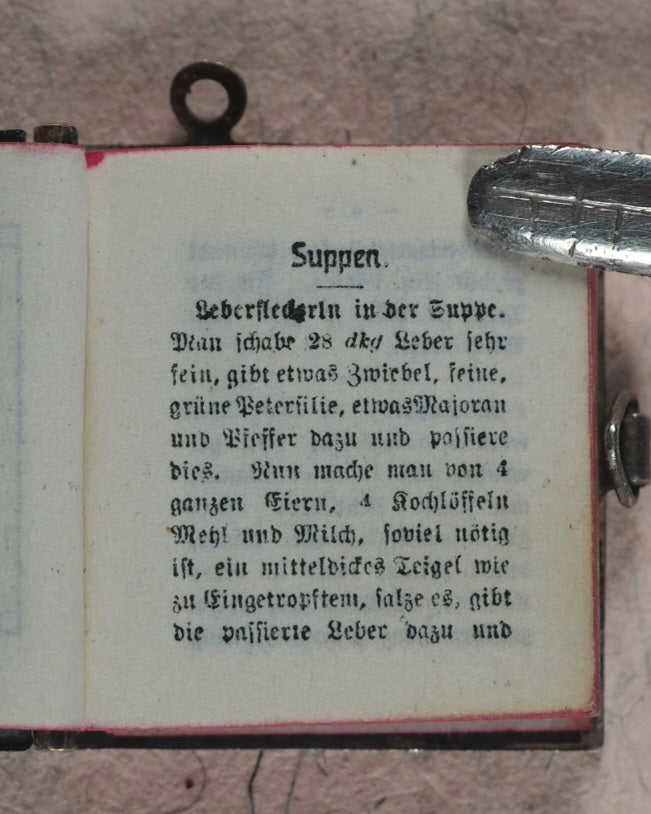 Suppen.
Leberflederln in der Suppe.
Man schabe 28 dkg Leber sehr
fein, gibt etwas Zwiebel, feine,
grüne Petersilie, etwas Majoran
und Pfeffer dazu und passiere
dies. Nun mache man von 4
ganzen Eiern, 4 Kochlöffeln
Mehl und Milch, soviel nötig
ist, ein mitteldickes Teigel wie
zu Eingetropftem, salze es, gibt
die passierte Leber dazu und